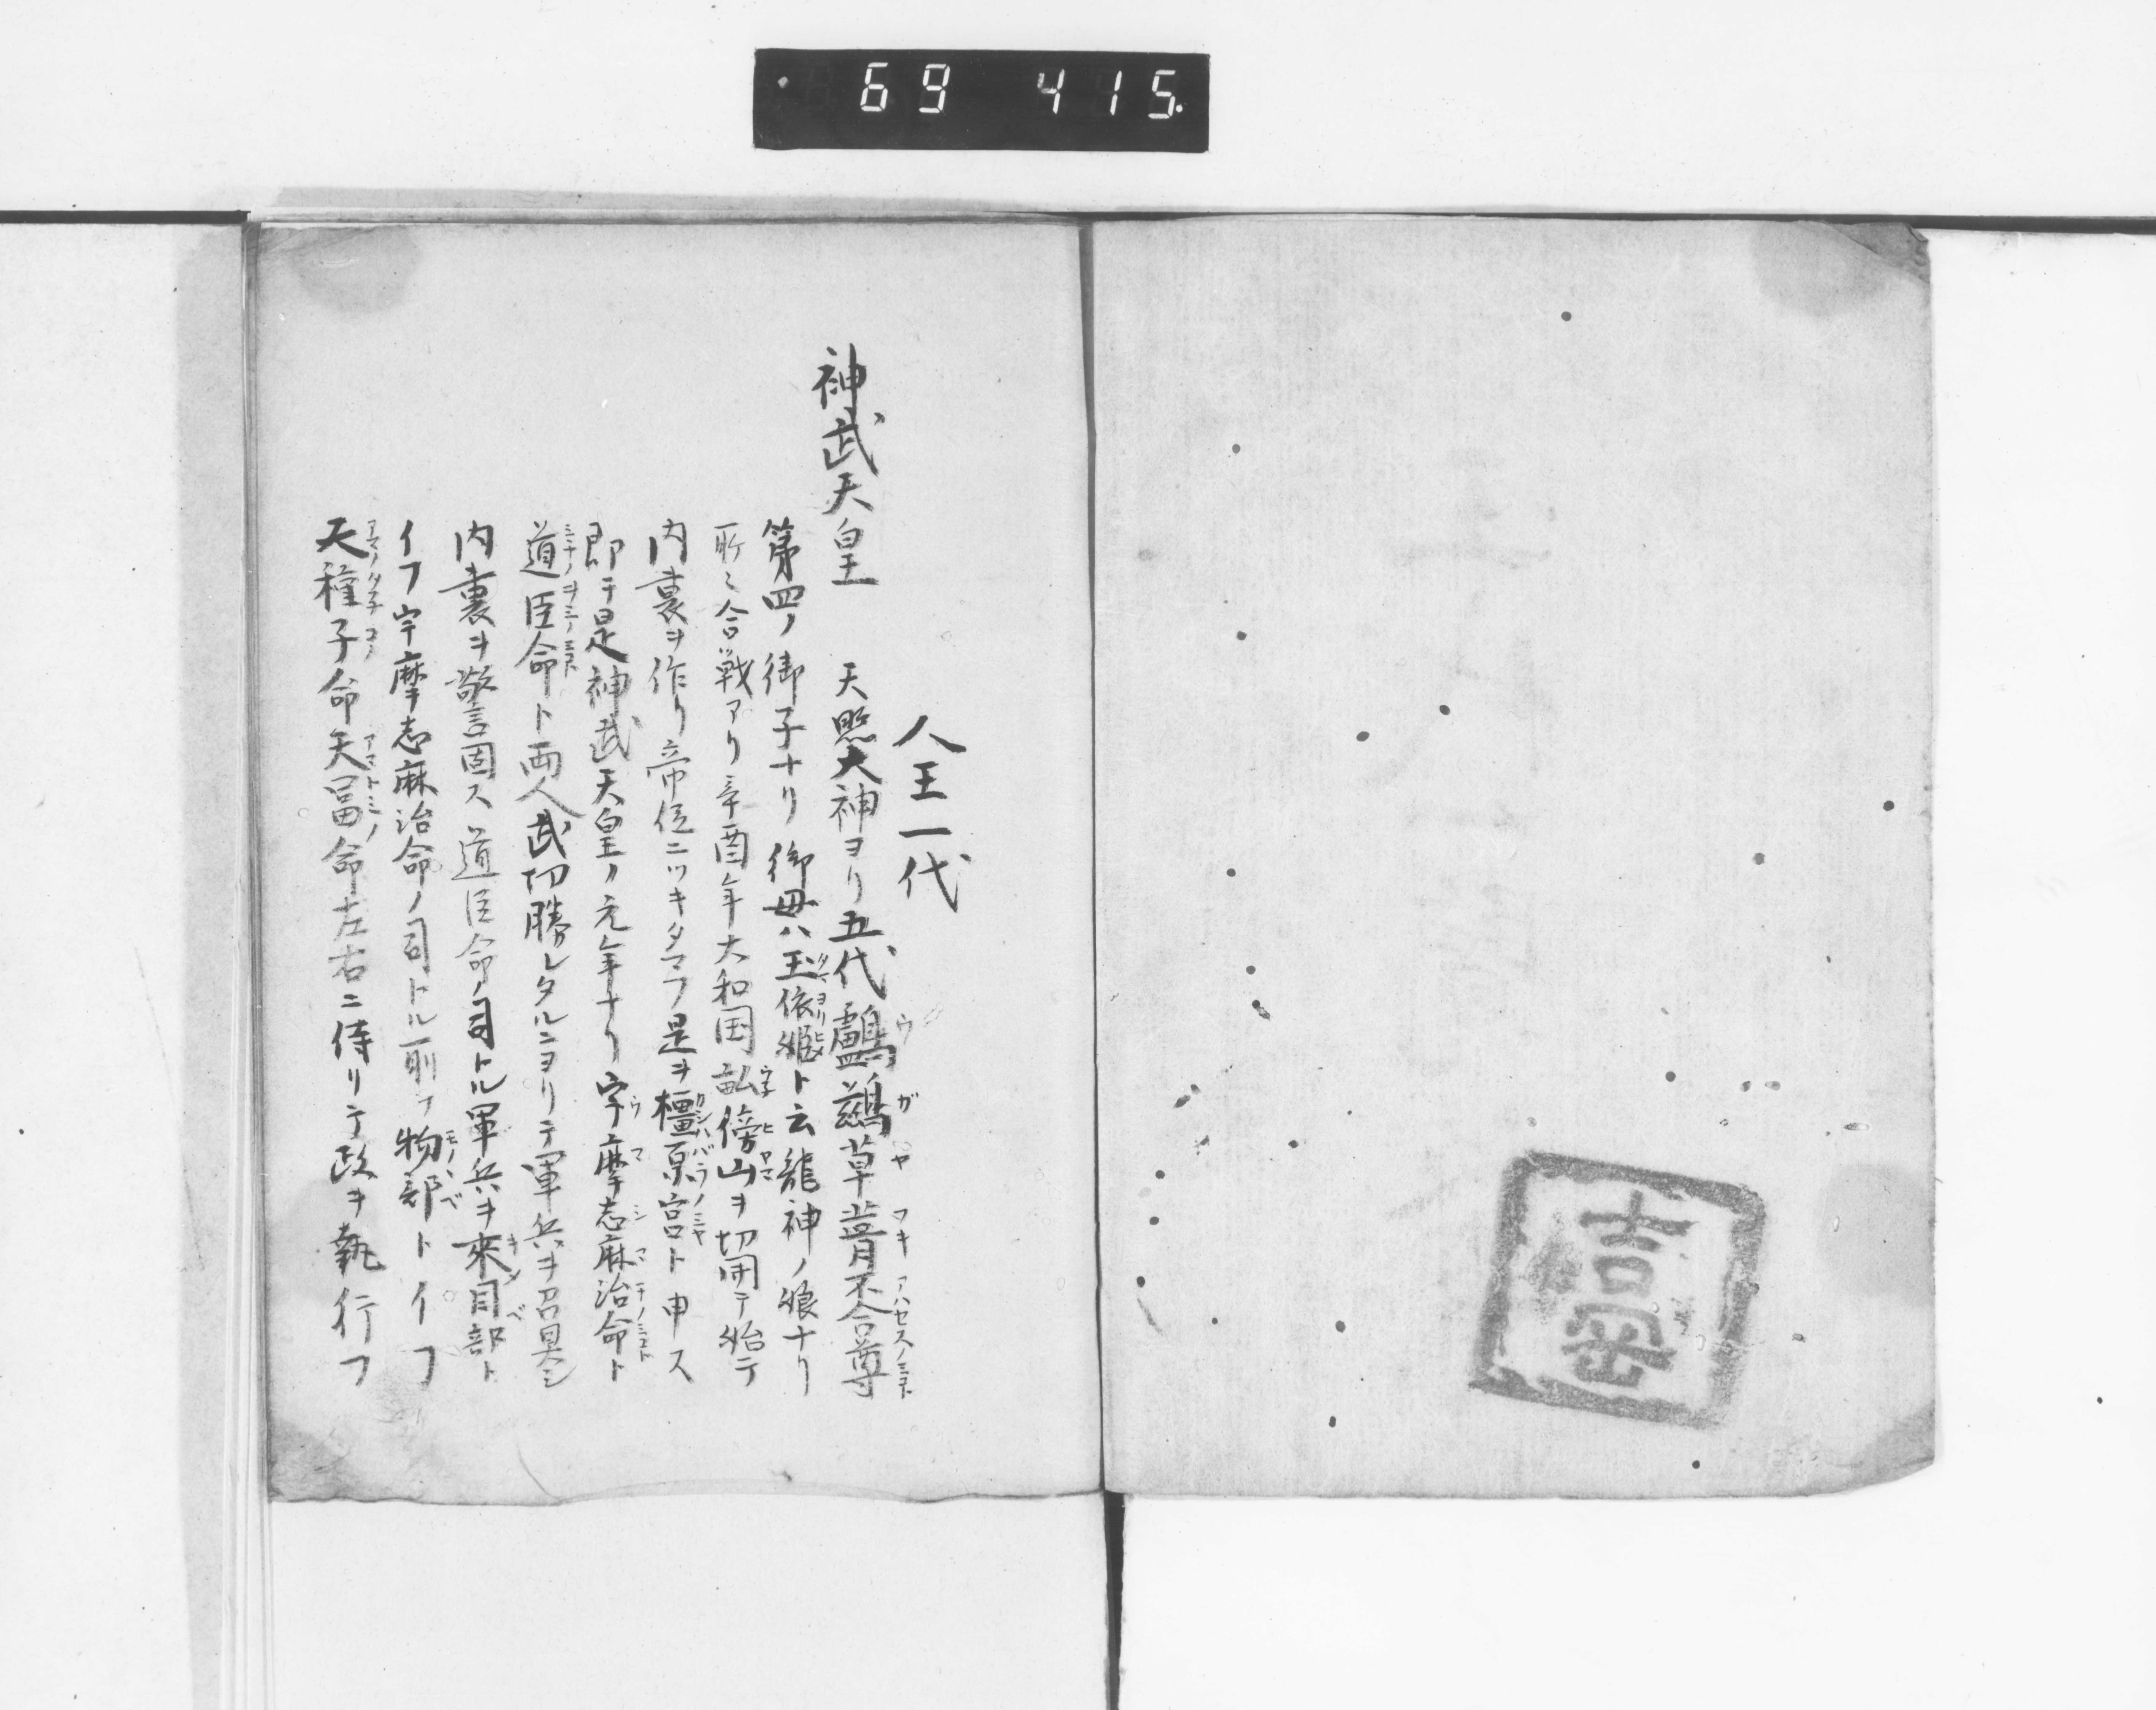 69 415.
吉岡
人王一代
神武天皇 天照大神ヨリ五代鸕鷀草葺不合尊
第四ノ御子ナリ御母ハ玉依姫ト云龍神ノ娘ナリ
所々合戦アリ辛酉年大和国畝傍山ヲ切開テ始テ
内裏ヲ作リ帝位ニツキタマフ是ヲ橿原宮ト申ス
即于是神武天皇ノ元年ナリ宇摩志麻治命ト
道臣命ト両人武切勝レタルニヨリテ軍兵ヲ召具シ
内裏ヲ警固ス道臣命ノ司トル軍兵ヲ来目部ト
イフ宇摩志麻治命ノ司トル所ヲ物部トイフ
天種子命天冨命左右ニ侍リテ政ヲ執行フ